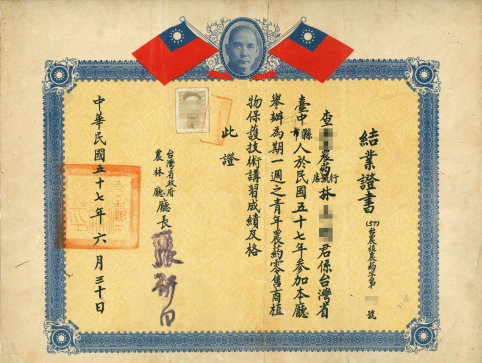 結業證書
(57)台農植農約字第 號
查 農葯行號店 林 君係台灣省
臺中縣市人於民國五十七年參加本廳
舉辦為期一週之青年農葯零售商植
物保護技術講習成績及格
此證
台灣省政府
農林廳廳長
中華民國五十七年六月三十日